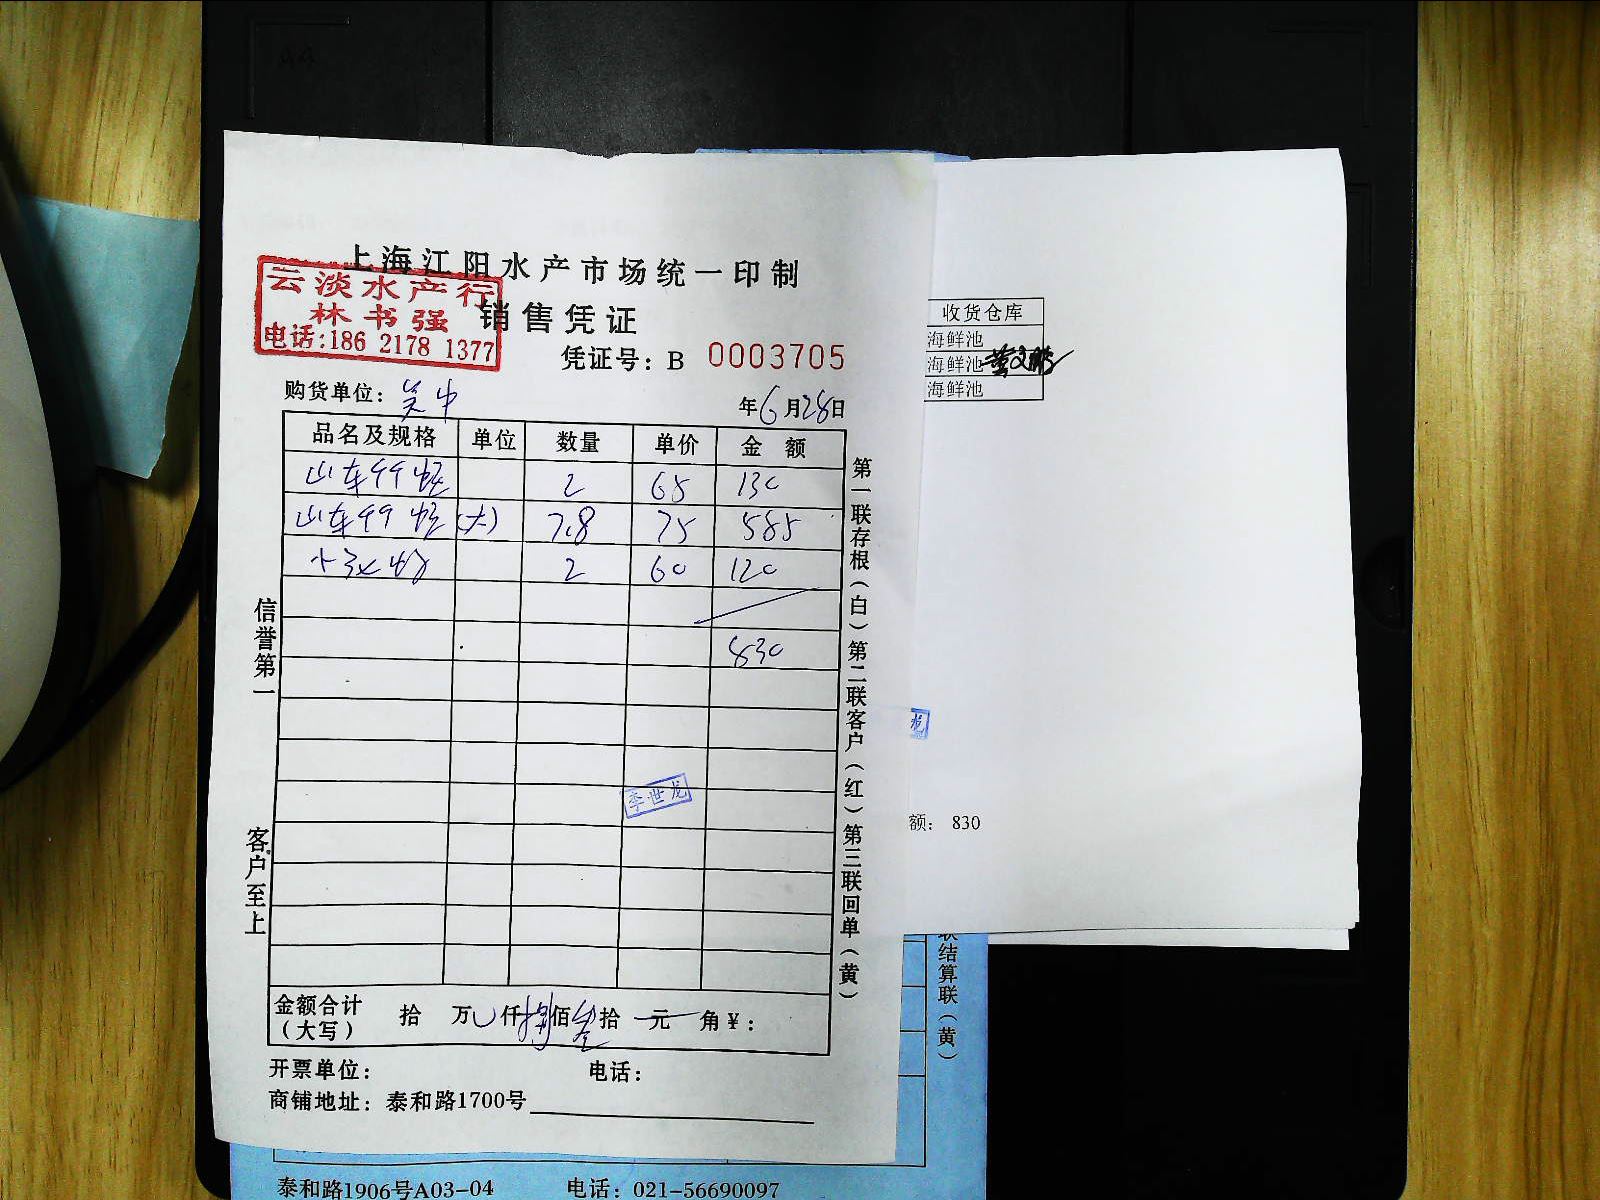 上海江阳水产市场统一印制
云淡水产行
林书强
电话:186 2178 1377
销售凭证
凭证号: B 0003705
购货单位: 吴中
年6月28日
品名及规格 单位 数量 单价 金额
山东99蛏 2 65 130
山东99蛏(大) 7.8 75 585
2 60 120
830
李世龙
金额合计(大写) 拾 万 仟捌佰叁拾 元 角¥:
开票单位: 电话:
商铺地址: 泰和路1700号
信誉第一
客户至上
第一联存根(白)第二联客户(红)第三联回单(黄)
收货仓库
海鲜池
海鲜池
海鲜池
龙
额: 830
联结算联(黄)
泰和路1906号A03-04 电话: 021-56690097